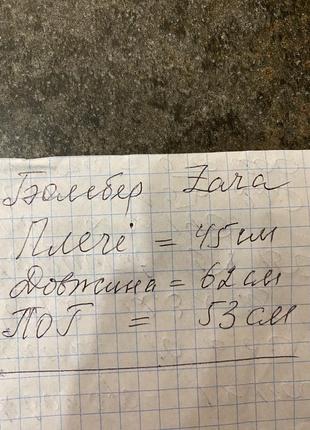 Бомбер Zara
Плечі = 45 см
Довжина = 62 см
ПОГ = 53 см